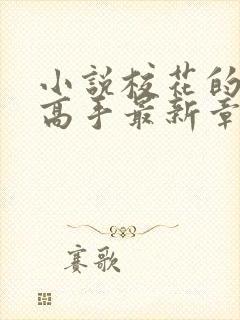 小説校花的
高手最新章
赛歌